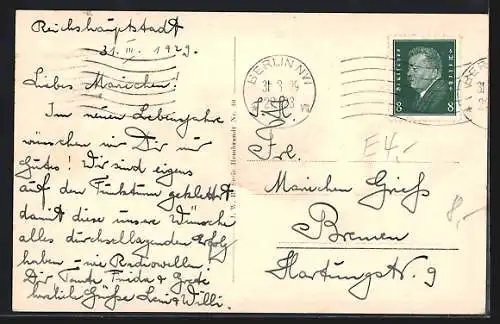 Reichshauptstadt
31. III. 1929.
Liebes Mariechen!
Im neuen Lebensjahre
wünschen wir Dir nur
Gutes! Wir sind eigens
auf den Funkturm geklettert
damit diese unsere Wünsche
alles durchschlagenden Erfolg
haben - wie Radiowellen.
Dir, Tante Frieda &
herzliche Grüße Leni & Willi.
BERLIN NW
31.3.29
Deutsches Reich
8 8
E4,-
8,-
Frl.
Mariechen Grieß
Bremen
Hartungstr. 9